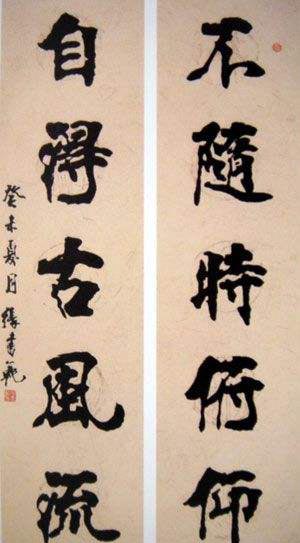 不隨時俯仰
自得古風流
癸未夏月